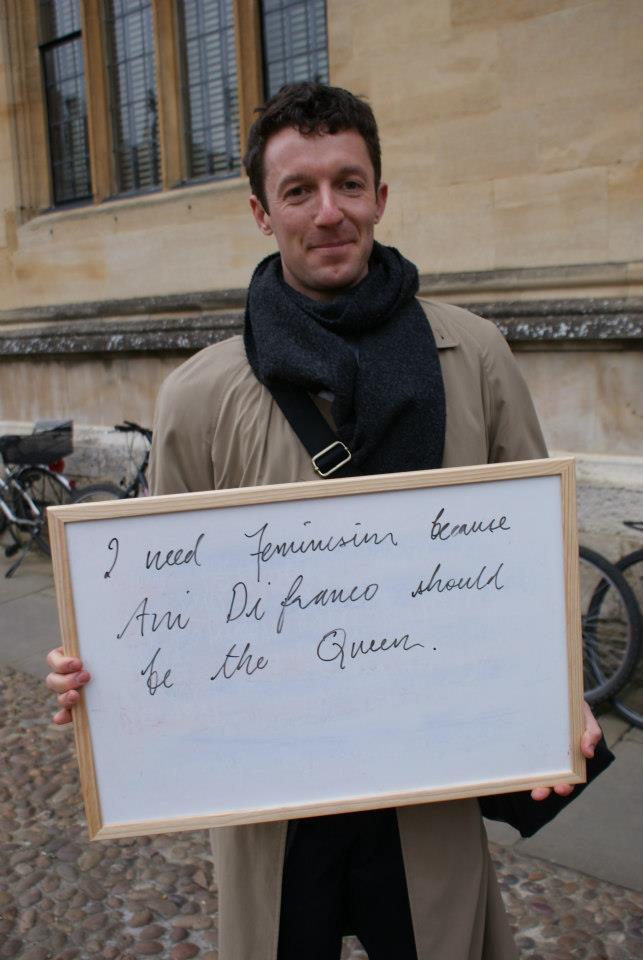 I need Feminism because
Ani Difranco should
be the Queen.